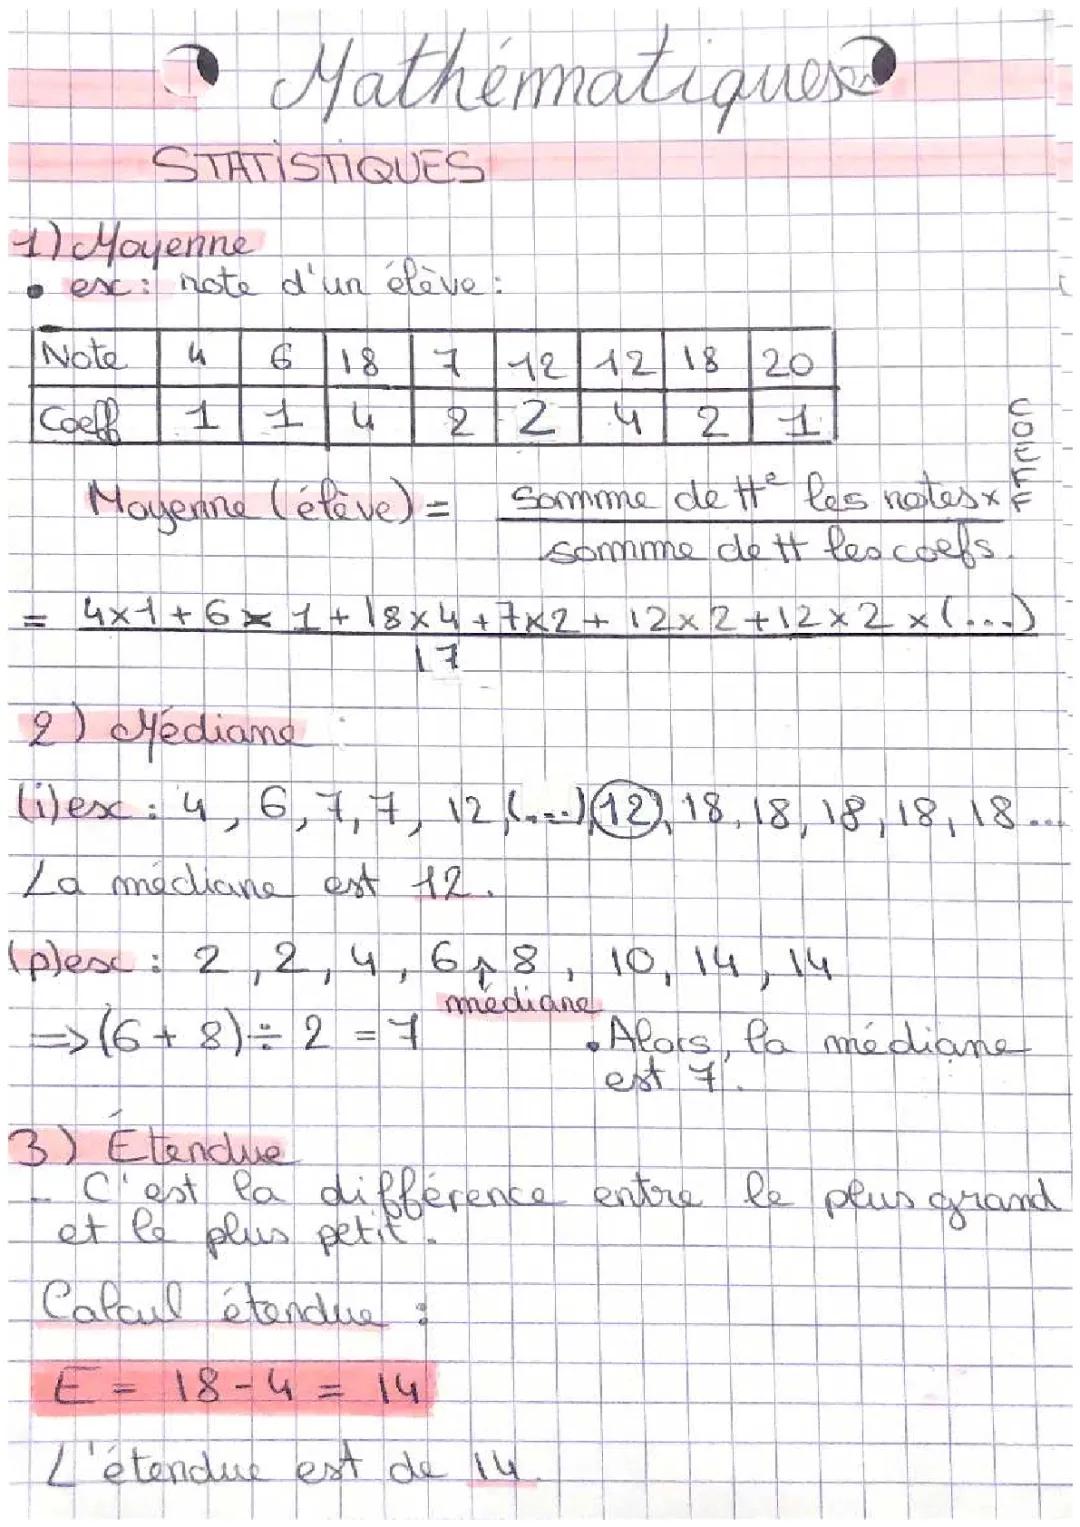 Mathématiques
STATISTIQUES
1) Moyenne
• ex: note d'un élève:
Note 4 6 18 7 12 12 18 20
Coeff 1 1 4 2 2 4 2 1
Moyenne (élève) = Somme de tt les notes x COEFF
somme de tt les coefs.
= 4x1 + 6x1 + 18x4 + 7x2 + 12x2 + 12x2 x (...)
17
2) Médiane :
(i) ex: 4, 6, 7, 7, 12, (...), 12, 18, 18, 18, 18, 18...
La médiane est 12.
(p) ex: 2, 2, 4, 6 ↑ 8, 10, 14, 14
médiane
=> (6 + 8) ÷ 2 = 7
• Alors, la médiane
est 7.
3) Étendue
- C'est la différence entre le plus grand
et le plus petit.
Calcul étendue :
E = 18 - 4 = 14
L'étendue est de 14.